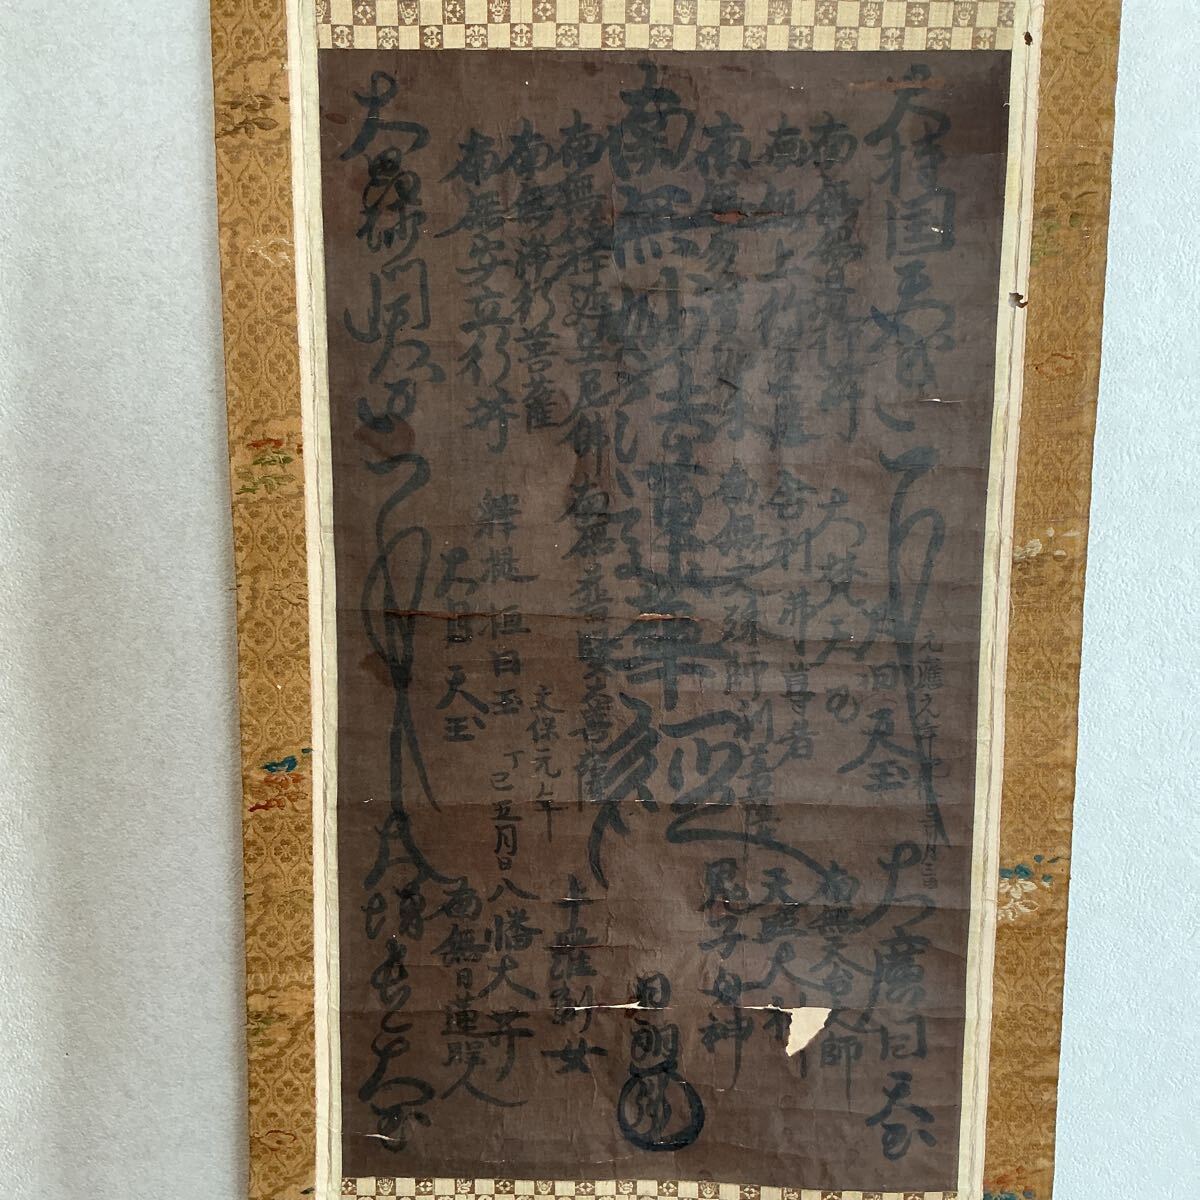 大持国天王
南無無邊行菩
南無上行菩薩
南無多寶如來
南無妙法蓮華經
南無釋迦牟尼佛
南無淨行菩薩
南無安立行菩
大毘沙門天王
大梵天王
舍利弗尊者
南無文殊師利菩薩
南無普賢大菩薩
釋提桓因王
大日天王
文保元年
丁巳五月日
元應元年
大廣目天王
南無天台大師
天照大神
鬼子母神
日朗
十羅刹女
八幡大菩
南無日蓮聖人
大増長天王